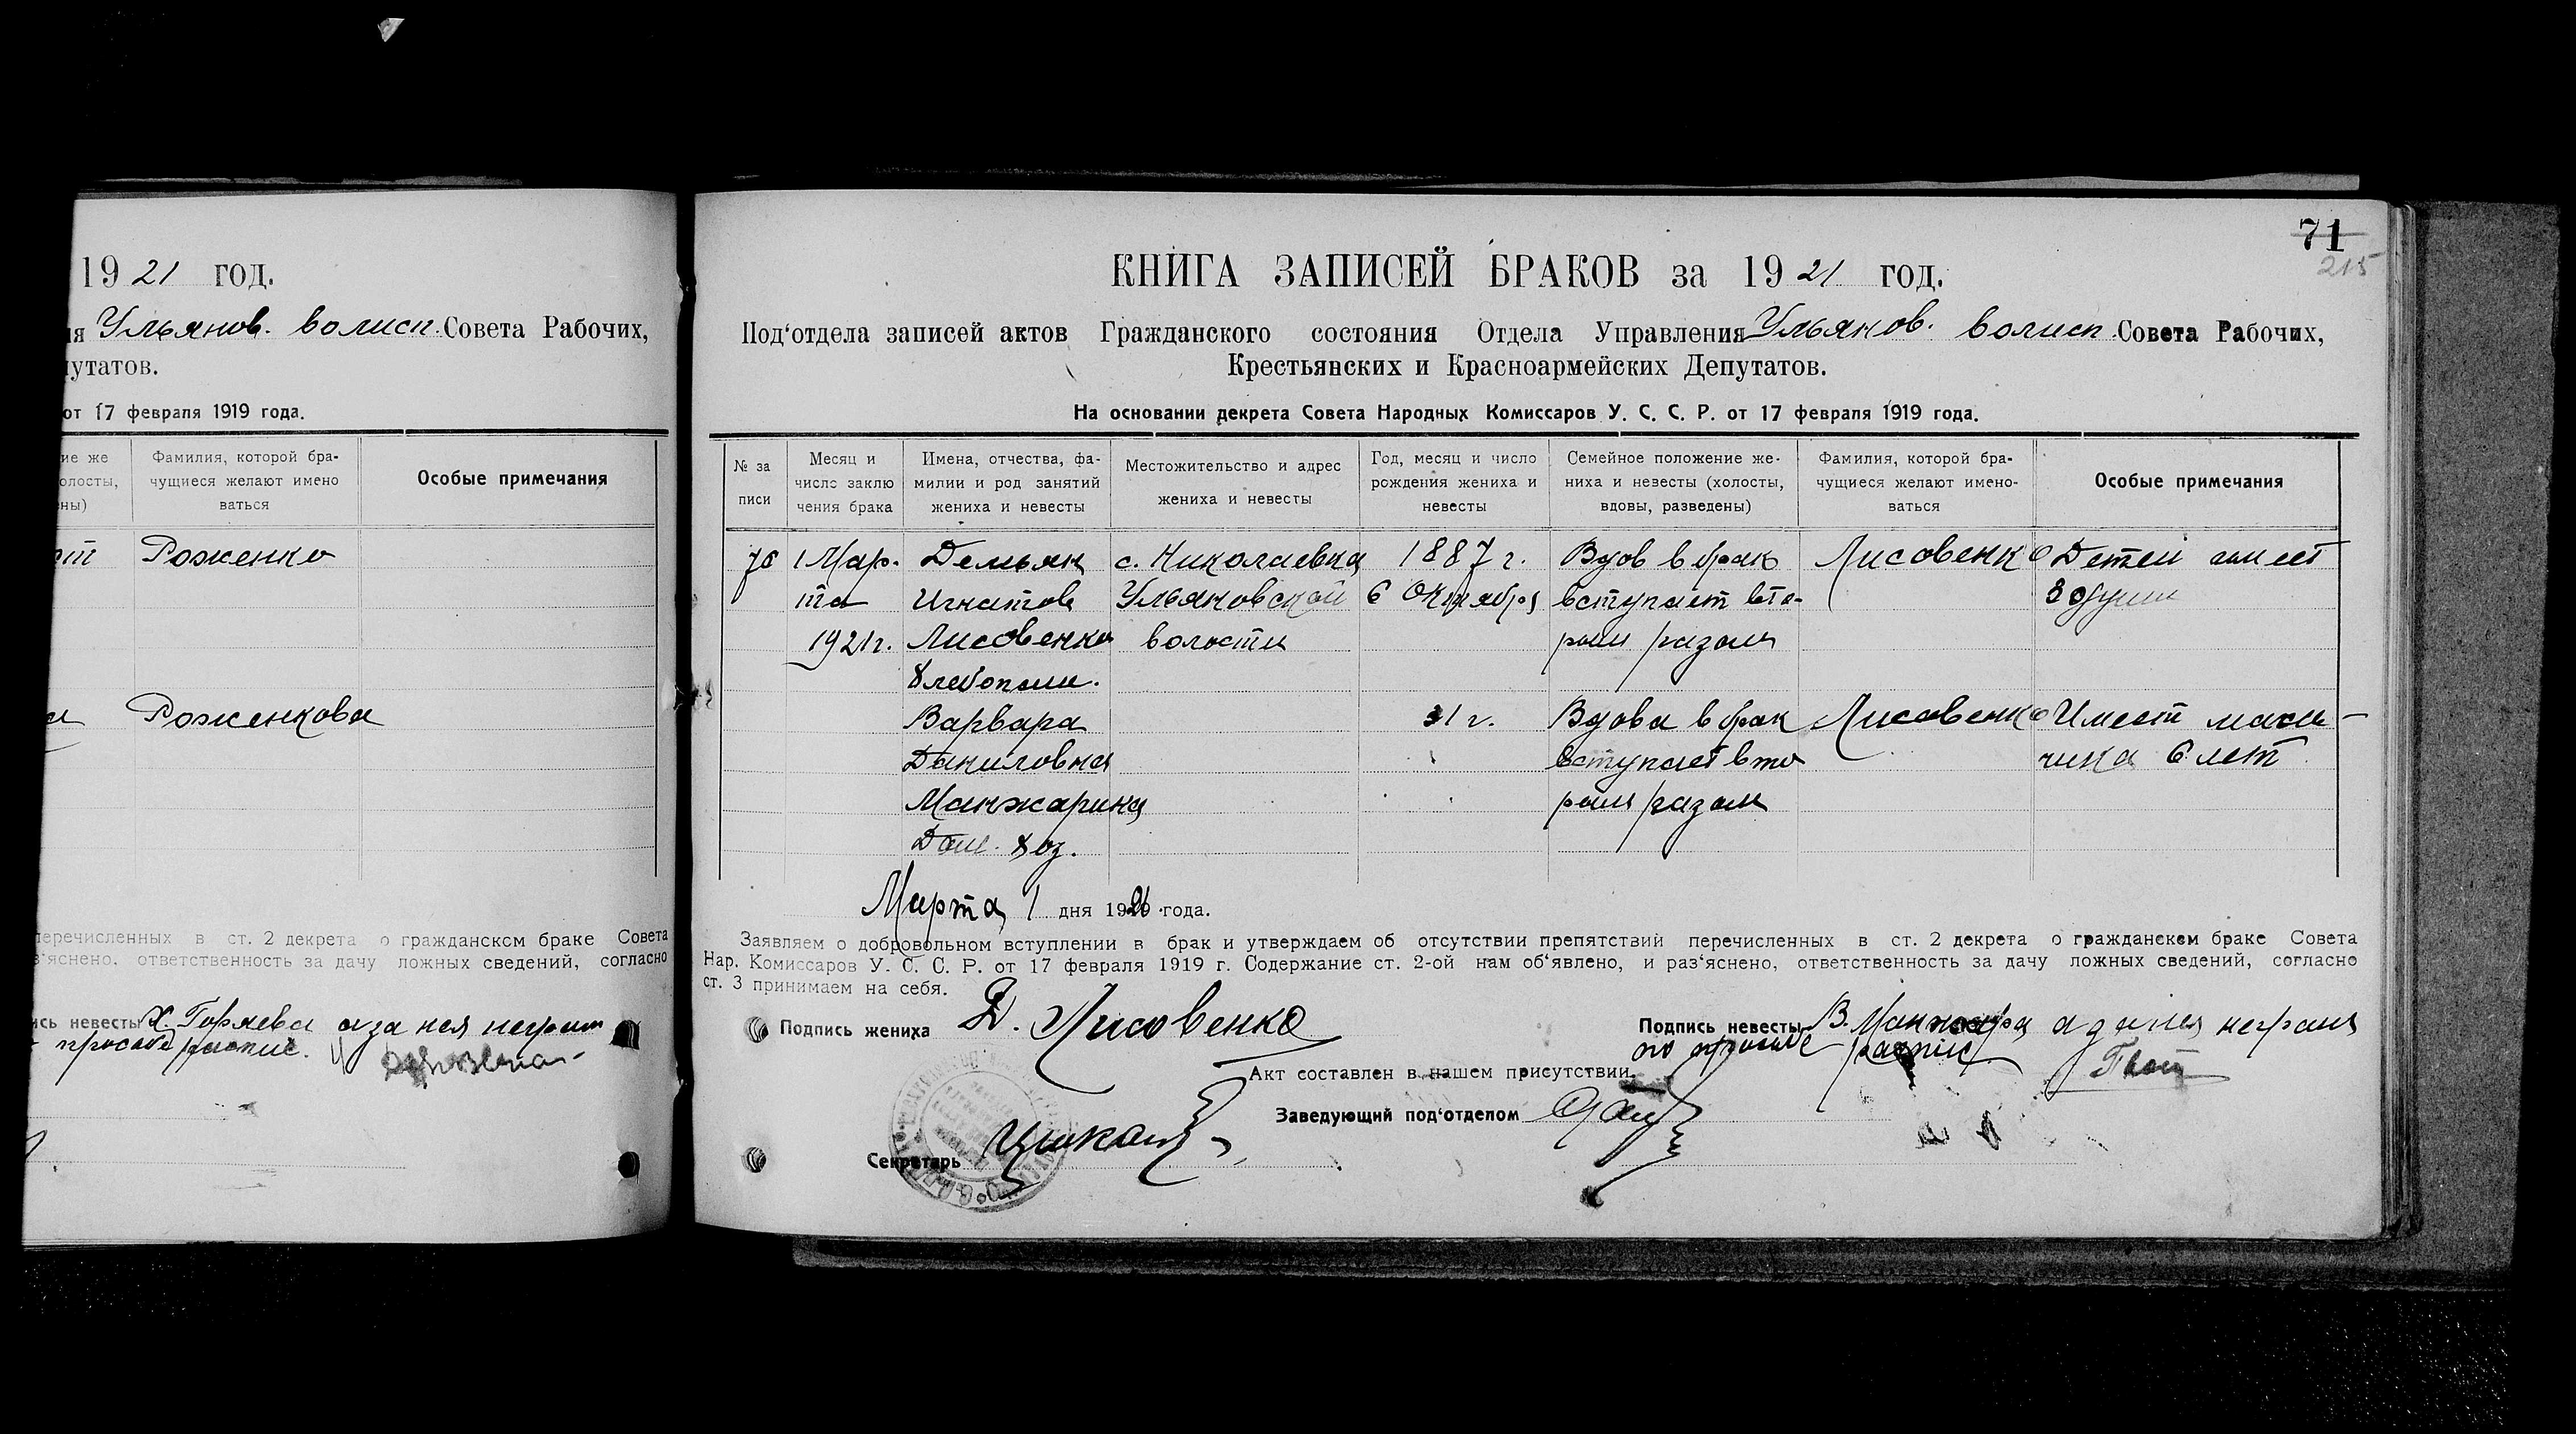 1921 год.
ия Ульянов. волисп. Совета Рабочих,
путатов.
от 17 февраля 1919 года.
ие же
олосты,
ны)
Фамилия, которой бра-
чущиеся желают имено
ваться
Особые примечания
Роженко
Роженкова
перечисленных в ст. 2 декрета о гражданском браке Совета
з'яснено, ответственность за дачу ложных сведений, согласно
ись невесты Х. Горяева а за нея неграм
просьбе распис.
71
215
КНИГА ЗАПИСЕЙ БРАКОВ за 1921 год.
Под'отдела записей актов Гражданского состояния Отдела Управления Ульянов. волисп. Совета Рабочих,
Крестьянских и Красноармейских Депутатов.
На основании декрета Совета Народных Комиссаров У. С. С. Р. от 17 февраля 1919 года.
№ за
писи
Месяц и
число заклю
чения брака
Имена, отчества, фа-
милии и род занятий
жениха и невесты
Местожительство и адрес
жениха и невесты
Год, месяц и число
рождения жениха и
невесты
Семейное положение же-
ниха и невесты (холосты,
вдовы, разведены)
Фамилия, которой бра-
чущиеся желают имено-
ваться
Особые примечания
1 Мар. Демьян с. Николаевка 1887 г. Вдов в брак Лисовенко Детей имеет
та Игнатов Ульяновской 6 Октября вступает вто- 3 души
1921 г. Лисовенко волости рым разом
Хлебопаш.
Варвара 31 г. Вдова в брак Лисовенко Имеет маль-
Даниловна вступает вто чика 6 лет
Манжарина рым разом
Дом. хоз.
Марта 1 дня 1921 года.
Заявляем о добровольном вступлении в брак и утверждаем об отсутствии препятствий перечисленных в ст. 2 декрета о гражданскем браке Совета
Нар. Комиссаров У. С. С. Р. от 17 февраля 1919 г. Содержание ст. 2-ой нам об'явлено, и раз'яснено, ответственность за дачу ложных сведений, согласно
ст. 3 принимаем на себя.
Подпись жениха Д. Лисовенко
Подпись невесты В. Манжара а за нея неграм
по просьбе распис
Акт составлен в нашем присутствии.
Заведующий под'отделом
Секретарь